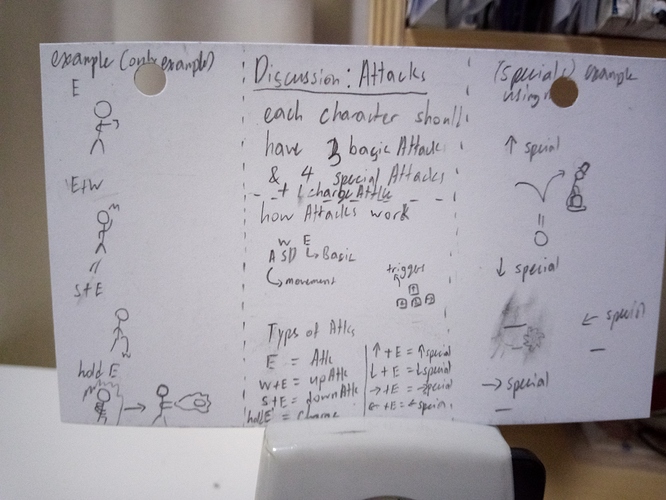 example (only example)
E
E+W
S+E
hold E
Discussion: Attacks
each character should
have 3 basic Attack
& 4 special Attacks
+ 1 charge Attk
how Attacks work
W E
A S D ↳ Basic
↳ movement
triggers
Types of Attks
E = Attk
W+E = upAttk
S+E = downAttk
hold E = Charge
↑ + E = ↑ special
↓ + E = ↓ special
→ + E = → special
← + E = ← special
(special) example
using
↑ special
↓ special
← special
→ special